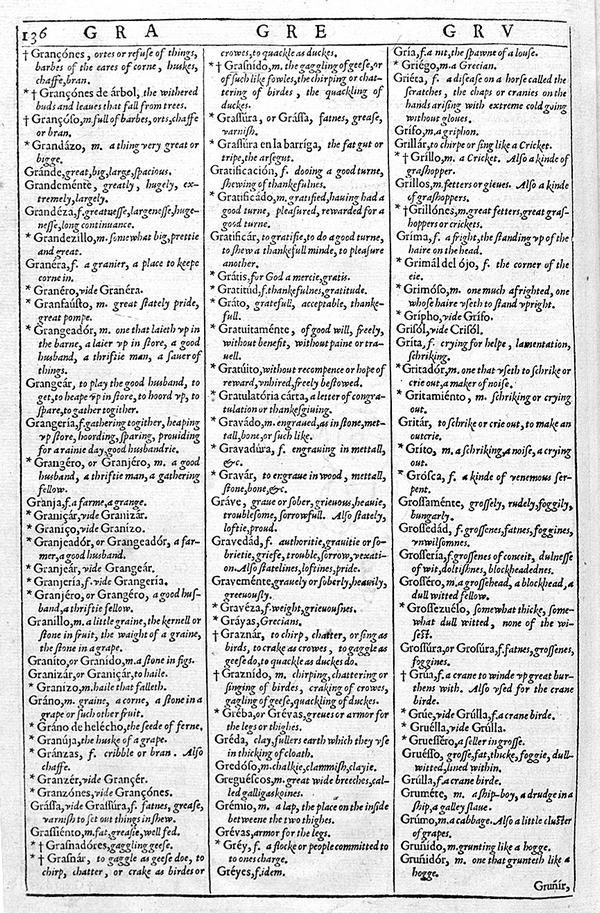 136 G R A G R E G R V
† Grançónes, ortes or refuse of things,
barbes of the eares of corne, huskes,
chaffe, bran.
* † Grançónes de árbol, the withered
buds and leaues that fall from trees.
† Grançóso, m. full of barbes, orts, chaffe
or bran.
* Grandázo, m. a thing very great or
bigge.
Gránde, great, big, large, spacious.
Grandeménte, greatly, hugely, ex-
tremely, largely.
Grandéza, f. greatnesse, largenesse, huge-
nesse, long continuance.
* Grandezíllo, m. somewhat big, prettie
and great.
Granéra, f. a granier, a place to keepe
corne in.
* Granéro, vide Granéra.
* Granfaústo, m. great stately pride,
great pompe.
* Grangeadór, m. one that laieth vp in
the barne, a laier vp in store, a good
husband, a thriftie man, a sauer of
things.
Grangeár, to play the good husband, to
get, to heape vp in store, to hoord vp, to
spare, to gather together.
Grangería, f. gathering together, heaping
vp store, hoording, sparing, prouiding
for a rainie day, good husbandrie.
* Grangéro, or Granjéro, m. a good
husband, a thriftie man, a gathering
fellow.
Granja, f. a farme, a grange.
* Graniçár, vide Granizár.
* Graníço, vide Granízo.
* Granjeadór, or Grangeadór, a far-
mer, a good husband.
* Granjeár, vide Grangeár.
* Granjería, f. vide Grangería.
* Granjéro, or Grangéro, a good hus-
band, a thriftie fellow.
Granillo, m. a little graine, the kernell or
stone in fruit, the waight of a graine,
the stone in a grape.
Granito, or Granído, m. a stone in figs.
Granizár, or Graniçár, to haile.
* Granizo, m. haile that falleth.
Gráno, m. graine, a corne, a stone in a
grape or such other fruit.
* Gráno de helécho, the seede of ferne.
* Granúja, the huske of a grape.
* Gránzas, f. cribble or bran. Also
chaffe.
* Granzér, vide Grançér.
* Granzónes, vide Grançónes.
Grássa, vide Grassúra, f. fatnes, grease,
varnish to set out things in shew.
Grassiénto, m. fat, greasie, well fed.
* † Grasnadóres, gaggling geese.
* † Grasnár, to gaggle as geese doe, to
chirp, chatter, or crake as birdes or
crowes, to quackle as duckes.
* † Grasnído, m. the gaggling of geese, or
of such like fowles, the chirping or chat-
tering of birdes, the quackling of
duckes.
* Grassúra, or Grássa, fatnes, grease,
varnish.
* Grassúra en la barríga, the fat gut or
tripe, the arsegut.
Gratificación, f. dooing a good turne,
shewing of thankefulnes.
* Gratificádo, m. gratified, hauing had a
good turne, pleasured, rewarded for a
good turne.
Gratificár, to gratifie, to do a good turne,
to shew a thankefull minde, to pleasure
another.
* Grátis, for God a mercie, gratis.
* Gratitúd, f. thankefulnes, gratitude.
* Gráto, gratefull, acceptable, thanke-
full.
* Gratuitaménte, of good will, freely,
without benefit, without paine or tra-
uell.
* Gratuíto, without recompence or hope of
reward, vnhired, freely bestowed.
* Gratulatória cárta, a letter of congra-
tulation or thankesgiuing.
* Gravádo, m. engraued, as in stone, met-
tall, bone, or such like.
* Gravadúra, f. engrauing in mettall,
&c.
* Gravár, to engraue in wood, mettall,
stone, bone, &c.
Gráve, graue or sober, grieuous, heauie,
troublesome, sorrowfull. Also stately,
loftie, proud.
Gravedád, f. authoritie, grauitie or so-
brietie, griefe, trouble, sorrow, vexati-
on. Also statelines, loftines, pride.
Graveménte, grauely or soberly, heauily,
greeuously.
* Gravéza, f. weight, grieuousnes.
* Gráyas, Grecians.
† Graznár, to chirp, chatter, or sing as
birds, to crake as crowes, to gaggle as
geese do, to quackle as duckes do.
† Graznído, m. chirping, chattering or
singing of birdes, craking of crowes,
gagling of geese, quackling of duckes.
* Gréba, or Grévas, greues or armor for
the legs or thighes.
Gréda, clay, fullers earth which they vse
in thicking of cloath.
Gredóso, m. chalkie, clammish, clayie.
Greguéscos, m. great wide breeches, cal-
led galligaskoines.
Grémio, m. a lap, the place on the inside
betweene the two thighes.
Grévas, armor for the legs.
* Gréy, f. a flocke or people committed to
to ones charge.
Gréyes, f. idem.
Gría, f. a nit, the spawne of a louse.
* Griégo, m. a Grecian.
Griéta, f. a disease on a horse called the
scratches, the chaps or cranies on the
hands arising with extreme cold going
without gloues.
Grifo, m. a griphon.
Grillár, to chirpe or sing like a Cricket.
* † Gríllo, m. a Cricket. Also a kinde of
grashopper.
Gríllos, m. fetters or gieues. Also a kinde
of grashoppers.
* † Grillónes, m. great fetters, great gras-
hoppers or crickets.
Gríma, f. a fright, the standing vp of the
haire on the head.
* Grimál del ójo, f. the corner of the
eie.
* Grimóso, m. one much afrighted, one
whose haire vseth to stand vpright.
* Grípho, vide Grífo.
Grisól, vide Crisól.
Gríta, f. crying for helpe, lamentation,
schriking.
* Gritadór, m. one that vseth to schrike or
crie out, a maker of noise.
* Gritamiénto, m. schriking or crying
out.
Gritár, to schrike or crie out, to make an
outcrie.
* Gríto, m. a schriking, a noise, a crying
out.
* Grósca, f. a kinde of venemous ser-
pent.
Grossaménte, grossely, rudely, foggily,
bungerly.
Grossedád, f. grossenes, fatnes, foggines,
vnwilsomnes.
Grossería, f. grossenes of conceit, dulnesse
of wit, doltishnes, blockheadednes.
Grosséro, m. a grossehead, a blockhead, a
dull witted fellow.
* Grossezuélo, somewhat thicke, some-
what dull witted, none of the wi-
sest.
Grossúra, or Grosúra, f. fatnes, grossenes,
foggines.
† Grúa, f. a crane to winde vp great bur-
thens with. Also vsed for the crane
birde.
* Grúe, vide Grúlla, f. a crane birde.
* Gruélla, vide Grúlla.
* Gruesséro, a seller in grosse.
Gruésso, grosse, fat, thicke, foggie, dull-
witted, lined within.
Grúlla, f. a crane birde.
Gruméte, m. a ship-boy, a drudge in a
ship, a galley slaue.
Grúmo, m. a cabbage. Also a little cluster
of grapes.
Gruñído, m. grunting like a hogge.
Gruñidór, m. one that grunteth like a
hogge.
Gruñír,